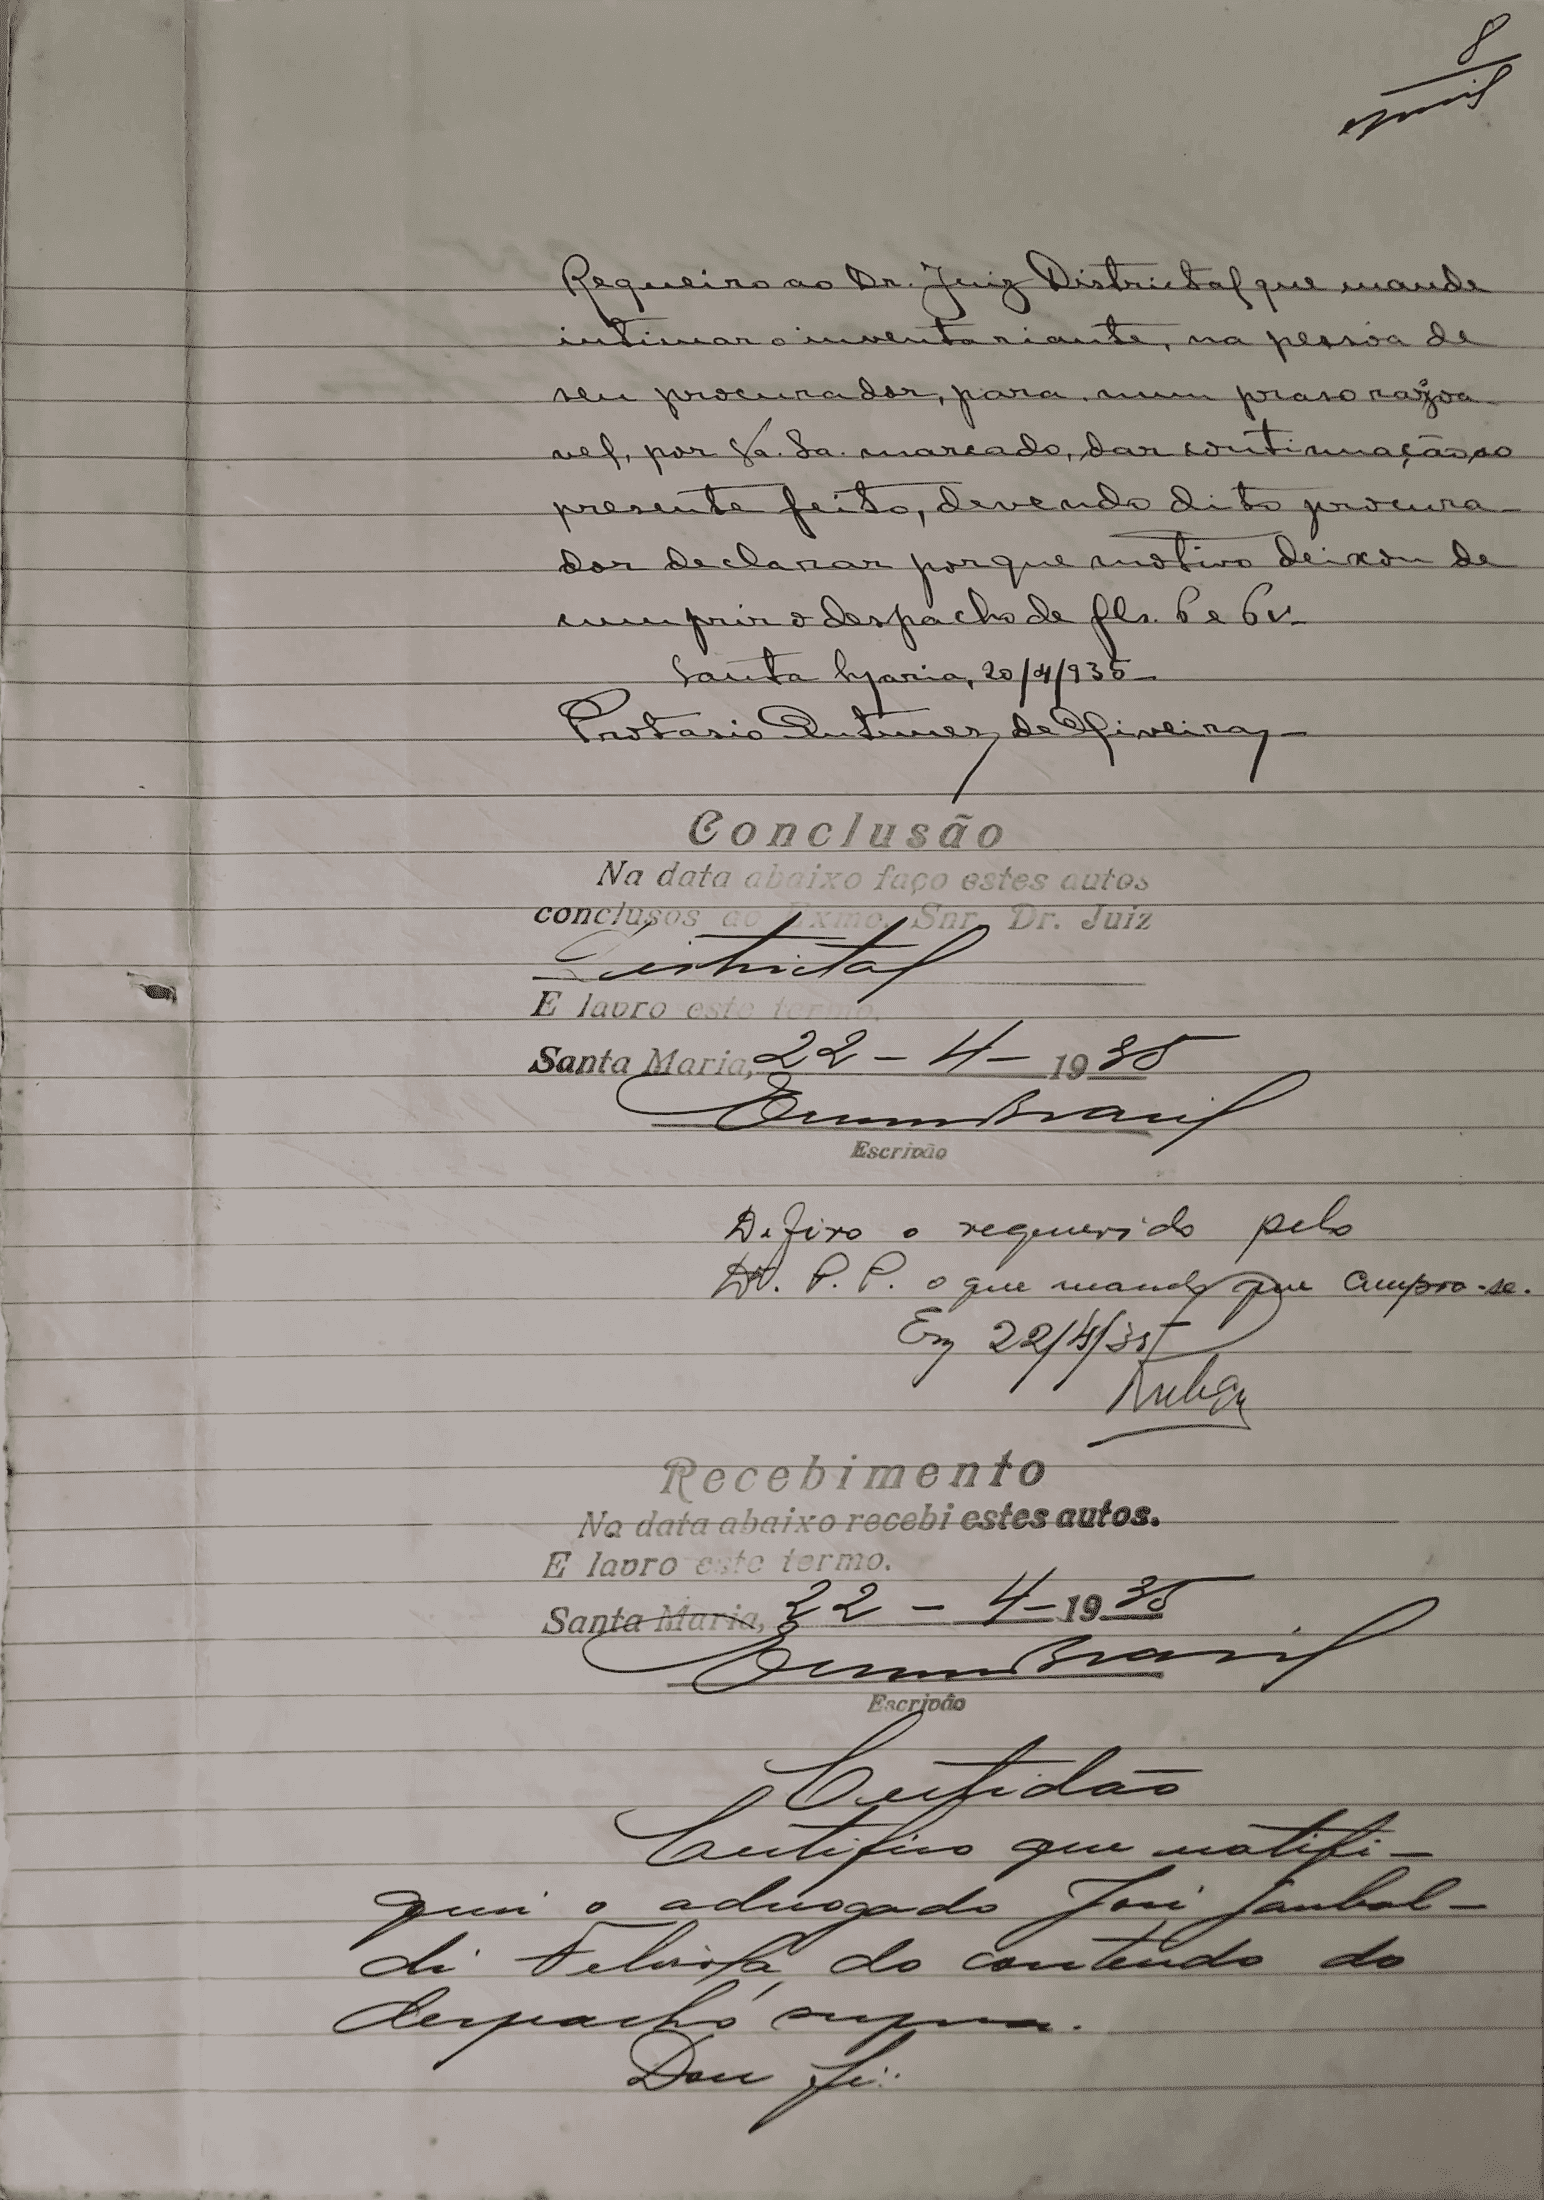 8
Requeiro ao Dr. Juiz Districtal que mande
intimar o inventariante, na pessoa de
seu procurador, para num praso razoa-
vel, por Va. Sa. marcado, dar continuação ao
presente feito, devendo dito procura-
dor declarar porque motivo deixou de
cumprir o despacho de fls. 6 e 6v.
Santa Maria, 20/4/935
Protasio Antunes de Oliveira
Conclusão
Na data abaixo faço estes autos
conclusos ao Exmo. Snr. Dr. Juiz
Districtal
E lavro este termo.
Santa Maria, 22 - 4 - 1935
Brasil
Escrivão
Defiro o requerido pelo
Dr. P. P. o que mando que cumpra-se.
Em 22/4/35
Recebimento
Na data abaixo recebi estes autos.
E lavro este termo.
Santa Maria, 22 - 4 - 1935
Brasil
Escrivão
Certidão
Certifico que notifi-
quei o advogado José
do conteudo do
despacho supra.
Dou fé: